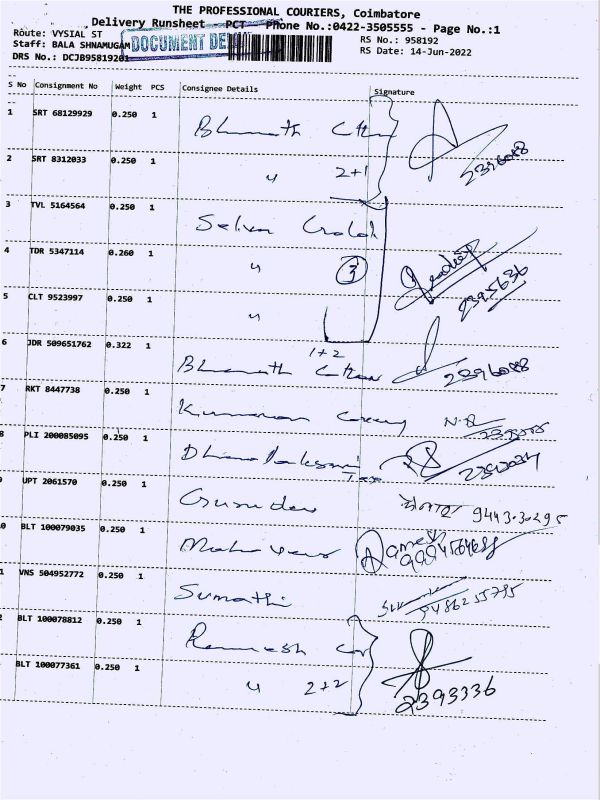 THE PROFESSIONAL COURIERS, Coimbatore
Delivery Runsheet - PCT - Phone No.:0422-3505555 - Page No.:1
Route: VYSIAL ST
RS No.: 958192
Staff: BALA SHNAMUGAM
DOCUMENT DE
RS Date: 14-Jun-2022
DRS No.: DCJB95819201
S No Consignment No Weight PCS Consignee Details Signature
1 SRT 68129929 0.250 1
2 SRT 8312033 0.250 1 " 2+1 2396088
3 TVL 5164564 0.250 1 Selvan
4 TDR 5347114 0.260 1 " 3
5 CLT 9523997 0.250 1 " 2395636
6 JDR 509651762 0.322 1 1+2 2396088
7 RKT 8447738 0.250 1 Kumaran
8 PLI 200085095 0.250 1 Tex
9 UPT 2061570 0.250 1 Gurudev 9443.30295
0 BLT 100079035 0.250 1 Ramesh
1 VNS 504952772 0.250 1 Sumathi 9486255795
2 BLT 100078812 0.250 1 Ramesh
BLT 100077361 0.250 1 " 2+2 2393336